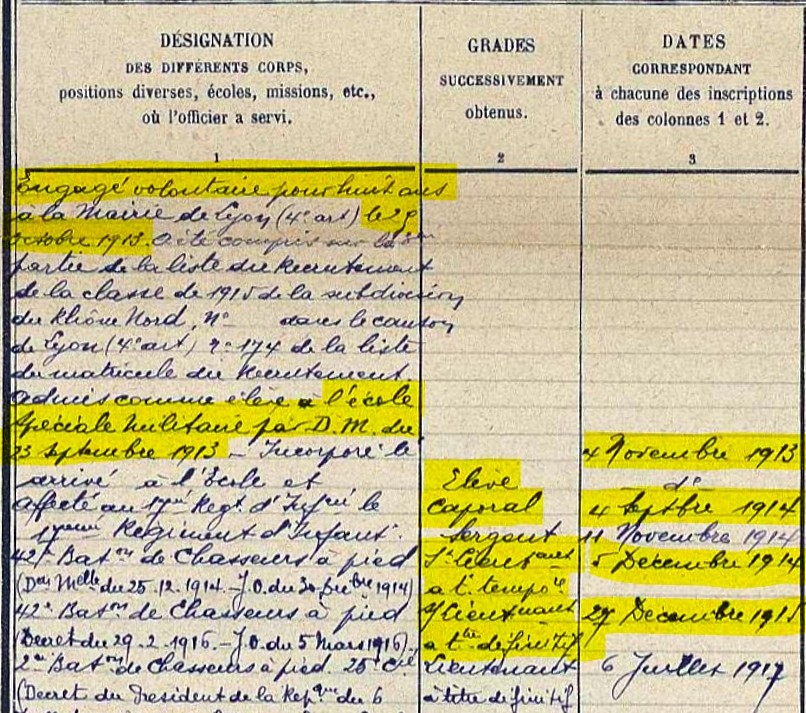 DÉSIGNATION
DES DIFFÉRENTS CORPS,
positions diverses, écoles, missions, etc.,
où l'officier a servi.
1
GRADES
SUCCESSIVEMENT
obtenus.
2
DATES
CORRESPONDANT
à chacune des inscriptions
des colonnes 1 et 2.
3
Engagé volontaire pour huit ans
à la Mairie de Lyon (4e art) le 29
octobre 1913. A été compris sur la
partie de la liste du Recrutement
de la classe de 1915 de la subdivision
du Rhône Nord, No dans le canton
de Lyon (4e art) no 174 de la liste
du matricule du Recrutement
admis comme élève à l'école
Spéciale Militaire par D.M. du
23 septembre 1913 – Incorporé le 4 Novembre 1913
arrivé à l'École et Elève do
affecté au 17me Regt d'Infrie le Caporal 4 Septbre 1914
17eme Régiment d'Infant. Sergent 11 Novembre 1914
42e Baton de Chasseurs à pied S/Lieutenant 5 Décembre 1914
(Don Melle du 25.12.1914 – J.O. du 30 1914) a te tempore
42e Baton de Chasseurs à pied S/Lieutenant 27 Décembre 1915
(Décret du 29.2.1916 – J.O. du 5 Mars 1916). a tre définitif
2e Baton de Chasseurs à pied. 25e Cie Lieutenant 6 Juillet 1917
(Décret du Président de la Repque du 6 à titre définitif